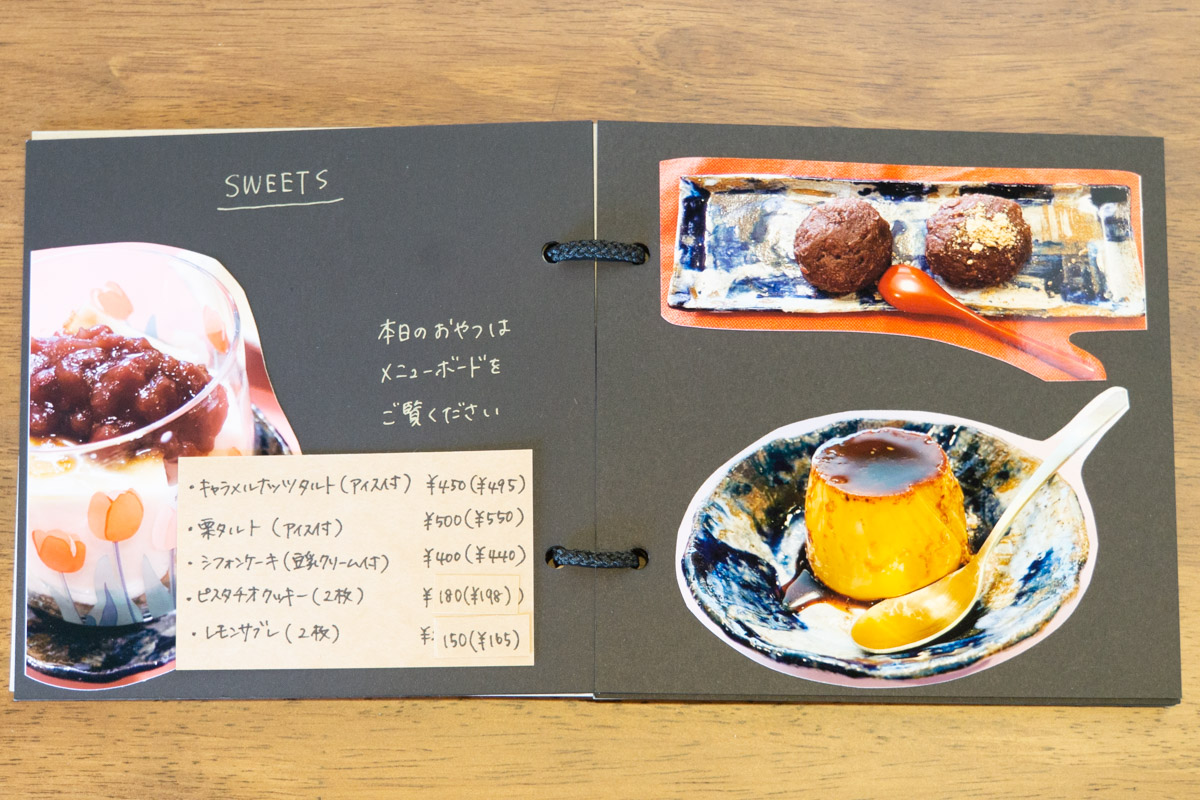 SWEETS
本日のおやつは
メニューボードを
ご覧ください
・キャラメルナッツタルト(アイス付) ¥450(¥495)
・栗タルト(アイス付) ¥500(¥550)
・シフォンケーキ(豆乳クリーム付) ¥400(¥440)
・ピスタチオクッキー(2枚) ¥180(¥198)
・レモンサブレ(2枚) ¥150(¥165)